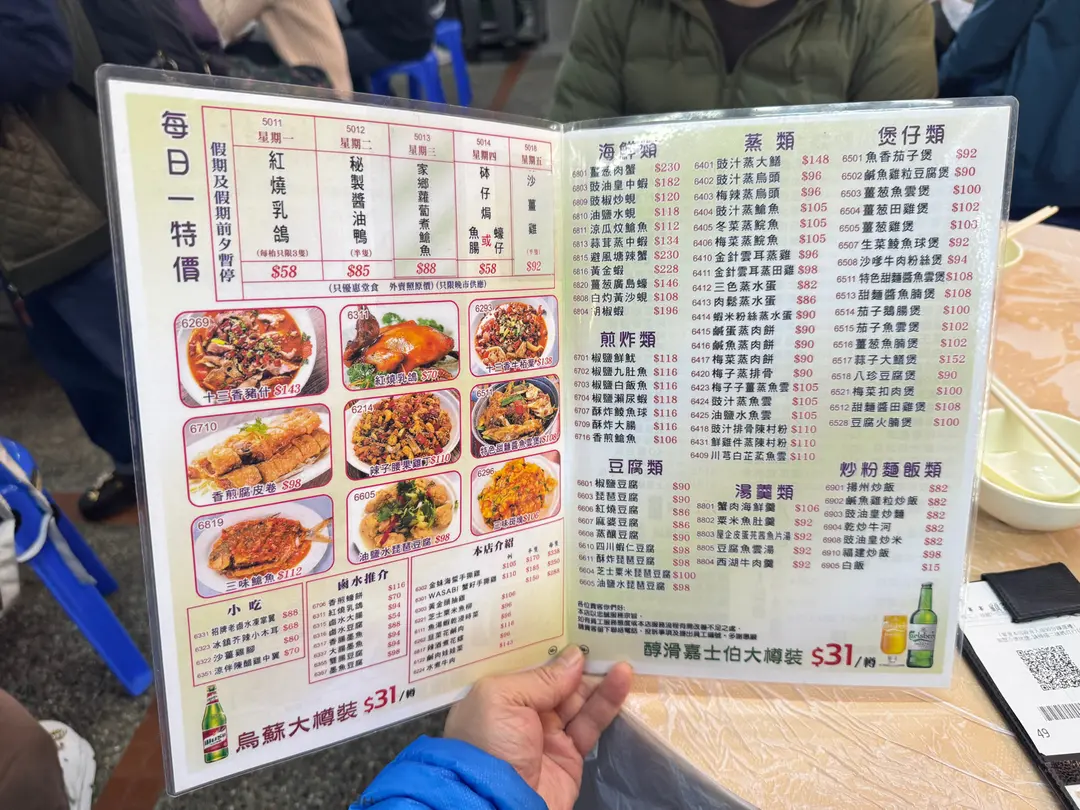 每日一特價
假期及假期前夕暫停
5011 星期一 紅燒乳鴿 (每枱只限3隻) $58
5012 星期二 秘製醬油鴨 (半隻) $85
5013 星期三 家鄉蘿蔔煮鯪魚 $88
5014 星期四 砵仔焗魚腸或蠔仔 $58
5018 星期五 沙薑雞 (半隻) $92
(只優惠堂食 外賣照原價)(只限晚市供應)
6269 十三香豬什 $143
6311 紅燒乳鴿 $70
6293 $138
6710 香煎腐皮卷 $98
6214 辣子腰果雞丁 $110
特色甜麵醬魚雲煲 $108
6819 三味鯰魚 $112
6605 油鹽水琵琶豆腐 $98
6296
小吃
6331 招牌老鹵水凍掌翼 $88
6323 冰鎮芥辣小木耳 $68
6322 沙薑雞腳 $80
6351 涼伴陳醋雞中翼 $70
鹵水推介
6706 香煎蠔餅 $116
6311 紅燒乳鴿 $70
鹵水大腸 $94
鹵水豆腐 $54
香膝墨魚 $88
大腸墨魚 $94
蟹膝豆腐
墨魚豆腐
本店介紹
例 半隻 每隻
金妹海蜇手撕雞 $105 $170 $338
WASABI 蟹籽手撕雞 $110 $185 $358
芝士粟米魚柳
水煮牛肉
烏蘇大樽裝 $31/樽
海鮮類
6801 薑葱肉蟹 $230
6803 豉油皇中蝦 $182
6809 豉椒炒蜆 $120
6810 油鹽水蜆 $118
6811 涼瓜炆鯰魚 $112
6813 蒜茸蒸中蝦 $134
6815 避風塘辣蟹 $230
6816 黃金蝦 $228
6820 薑葱廣島蠔 $146
6808 白灼黃沙蜆 $108
6804 胡椒蝦 $196
煎炸類
6701 椒鹽鮮魷 $118
6702 椒鹽九肚魚 $116
6703 椒鹽白飯魚 $116
6704 椒鹽瀨尿蝦 $118
6707 酥炸鯪魚球 $116
6709 酥炸大腸 $116
6716 香煎鯰魚 $106
豆腐類
6601 椒鹽豆腐 $90
6603 琵琶豆腐 $90
6606 紅燒豆腐 $86
6607 麻婆豆腐 $86
6608 蒸釀豆腐 $90
6610 四川蝦仁豆腐 $98
6611 酥炸琵琶豆腐 $98
6604 芝士粟米琵琶豆腐 $100
6605 油鹽水琵琶豆腐 $98
蒸類
6401 豉汁蒸大鱔 $148
6402 豉汁蒸烏頭 $96
6403 梅辣蒸烏頭 $96
6404 豉汁蒸鯰魚 $105
6405 冬菜蒸鯇魚 $105
6406 梅菜蒸鯇魚 $105
6410 金針雲耳蒸雞 $96
6411 金針雲耳蒸田雞 $98
6412 三色蒸水蛋 $82
6413 肉鬆蒸水蛋 $86
6414 蝦米粉絲蒸水蛋 $90
6415 鹹蛋蒸肉餅 $90
6416 鹹魚蒸肉餅 $90
6417 梅菜蒸肉餅 $90
6420 梅子蒸排骨 $90
6423 梅子子薑蒸魚雲 $105
6424 豉汁蒸魚雲 $105
6425 油鹽水魚雲 $105
6418 豉汁排骨陳村粉 $110
6431 鮮雞件蒸陳村粉 $110
6409 川芎白芷蒸魚雲 $110
湯羹類
8801 蟹肉海鮮羹 $106
8802 粟米魚肚羹 $92
8803 勝瓜皮蛋芫茜魚片湯 $92
8805 豆腐魚雲湯 $92
8804 西湖牛肉羹 $92
煲仔類
6501 魚香茄子煲 $92
6502 鹹魚雞粒豆腐煲 $90
6503 薑葱魚雲煲 $100
6504 薑葱田雞煲 $102
6505 薑葱雞煲 $100
6507 生菜鯪魚球煲 $92
6508 沙嗲牛肉粉絲煲 $94
6511 特色甜麵醬魚雲煲 $108
6513 甜麵醬魚腩煲 $108
6514 茄子鵝腸煲 $100
6515 茄子魚雲煲 $102
6516 薑葱魚腩煲 $102
6517 蒜子大鱔煲 $152
6518 八珍豆腐煲 $90
6521 梅菜扣肉煲 $100
6512 甜麵醬田雞煲 $108
6528 豆腐火腩煲 $100
炒粉麵飯類
6901 揚州炒飯 $82
6902 鹹魚雞粒炒飯 $82
6903 豉油皇炒麵 $82
6904 乾炒牛河 $82
6908 豉油皇炒米 $82
6910 福建炒飯 $98
6905 白飯 $15
各位貴客你們好:
本店以忠誠服務宗旨,
醇滑嘉士伯大樽裝 $31/樽
Carlsberg
49